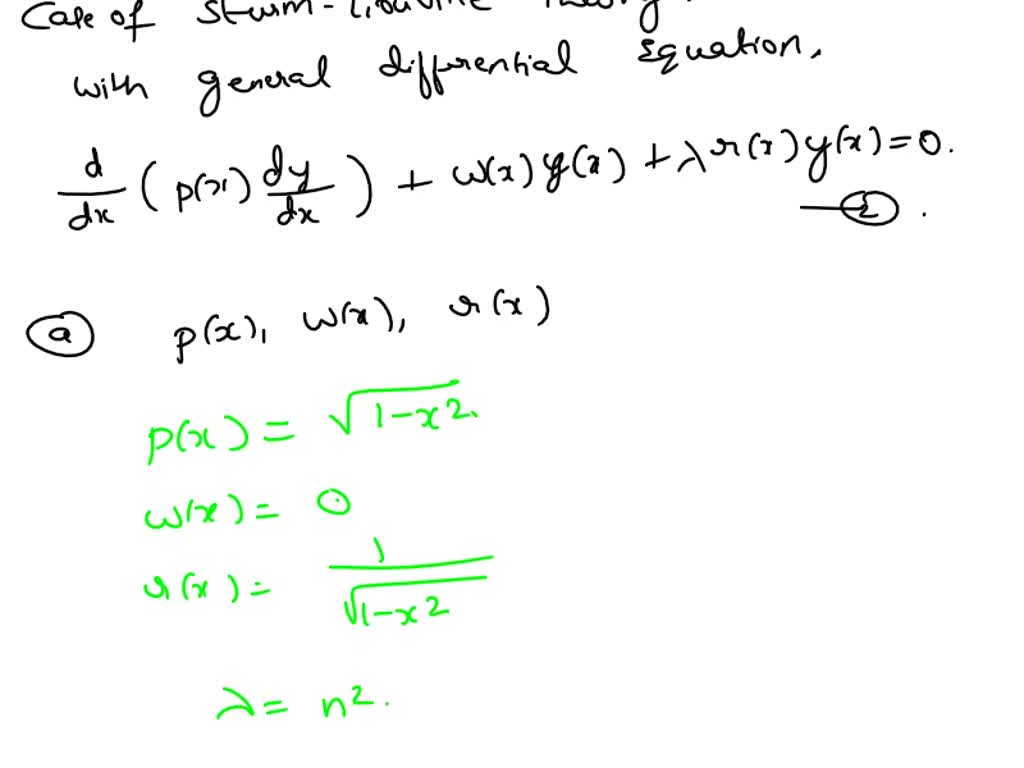 Case of Sturm-Liouville
with general differential Equation,
d/dx ( p(x) dy/dx ) + w(x) y(x) + λ r(x) y(x) = 0.
— ② .
ⓐ p(x), w(x), r(x)
p(x) = √(1-x²).
w(x) = 0
r(x) = 1/√(1-x²)
λ = n².